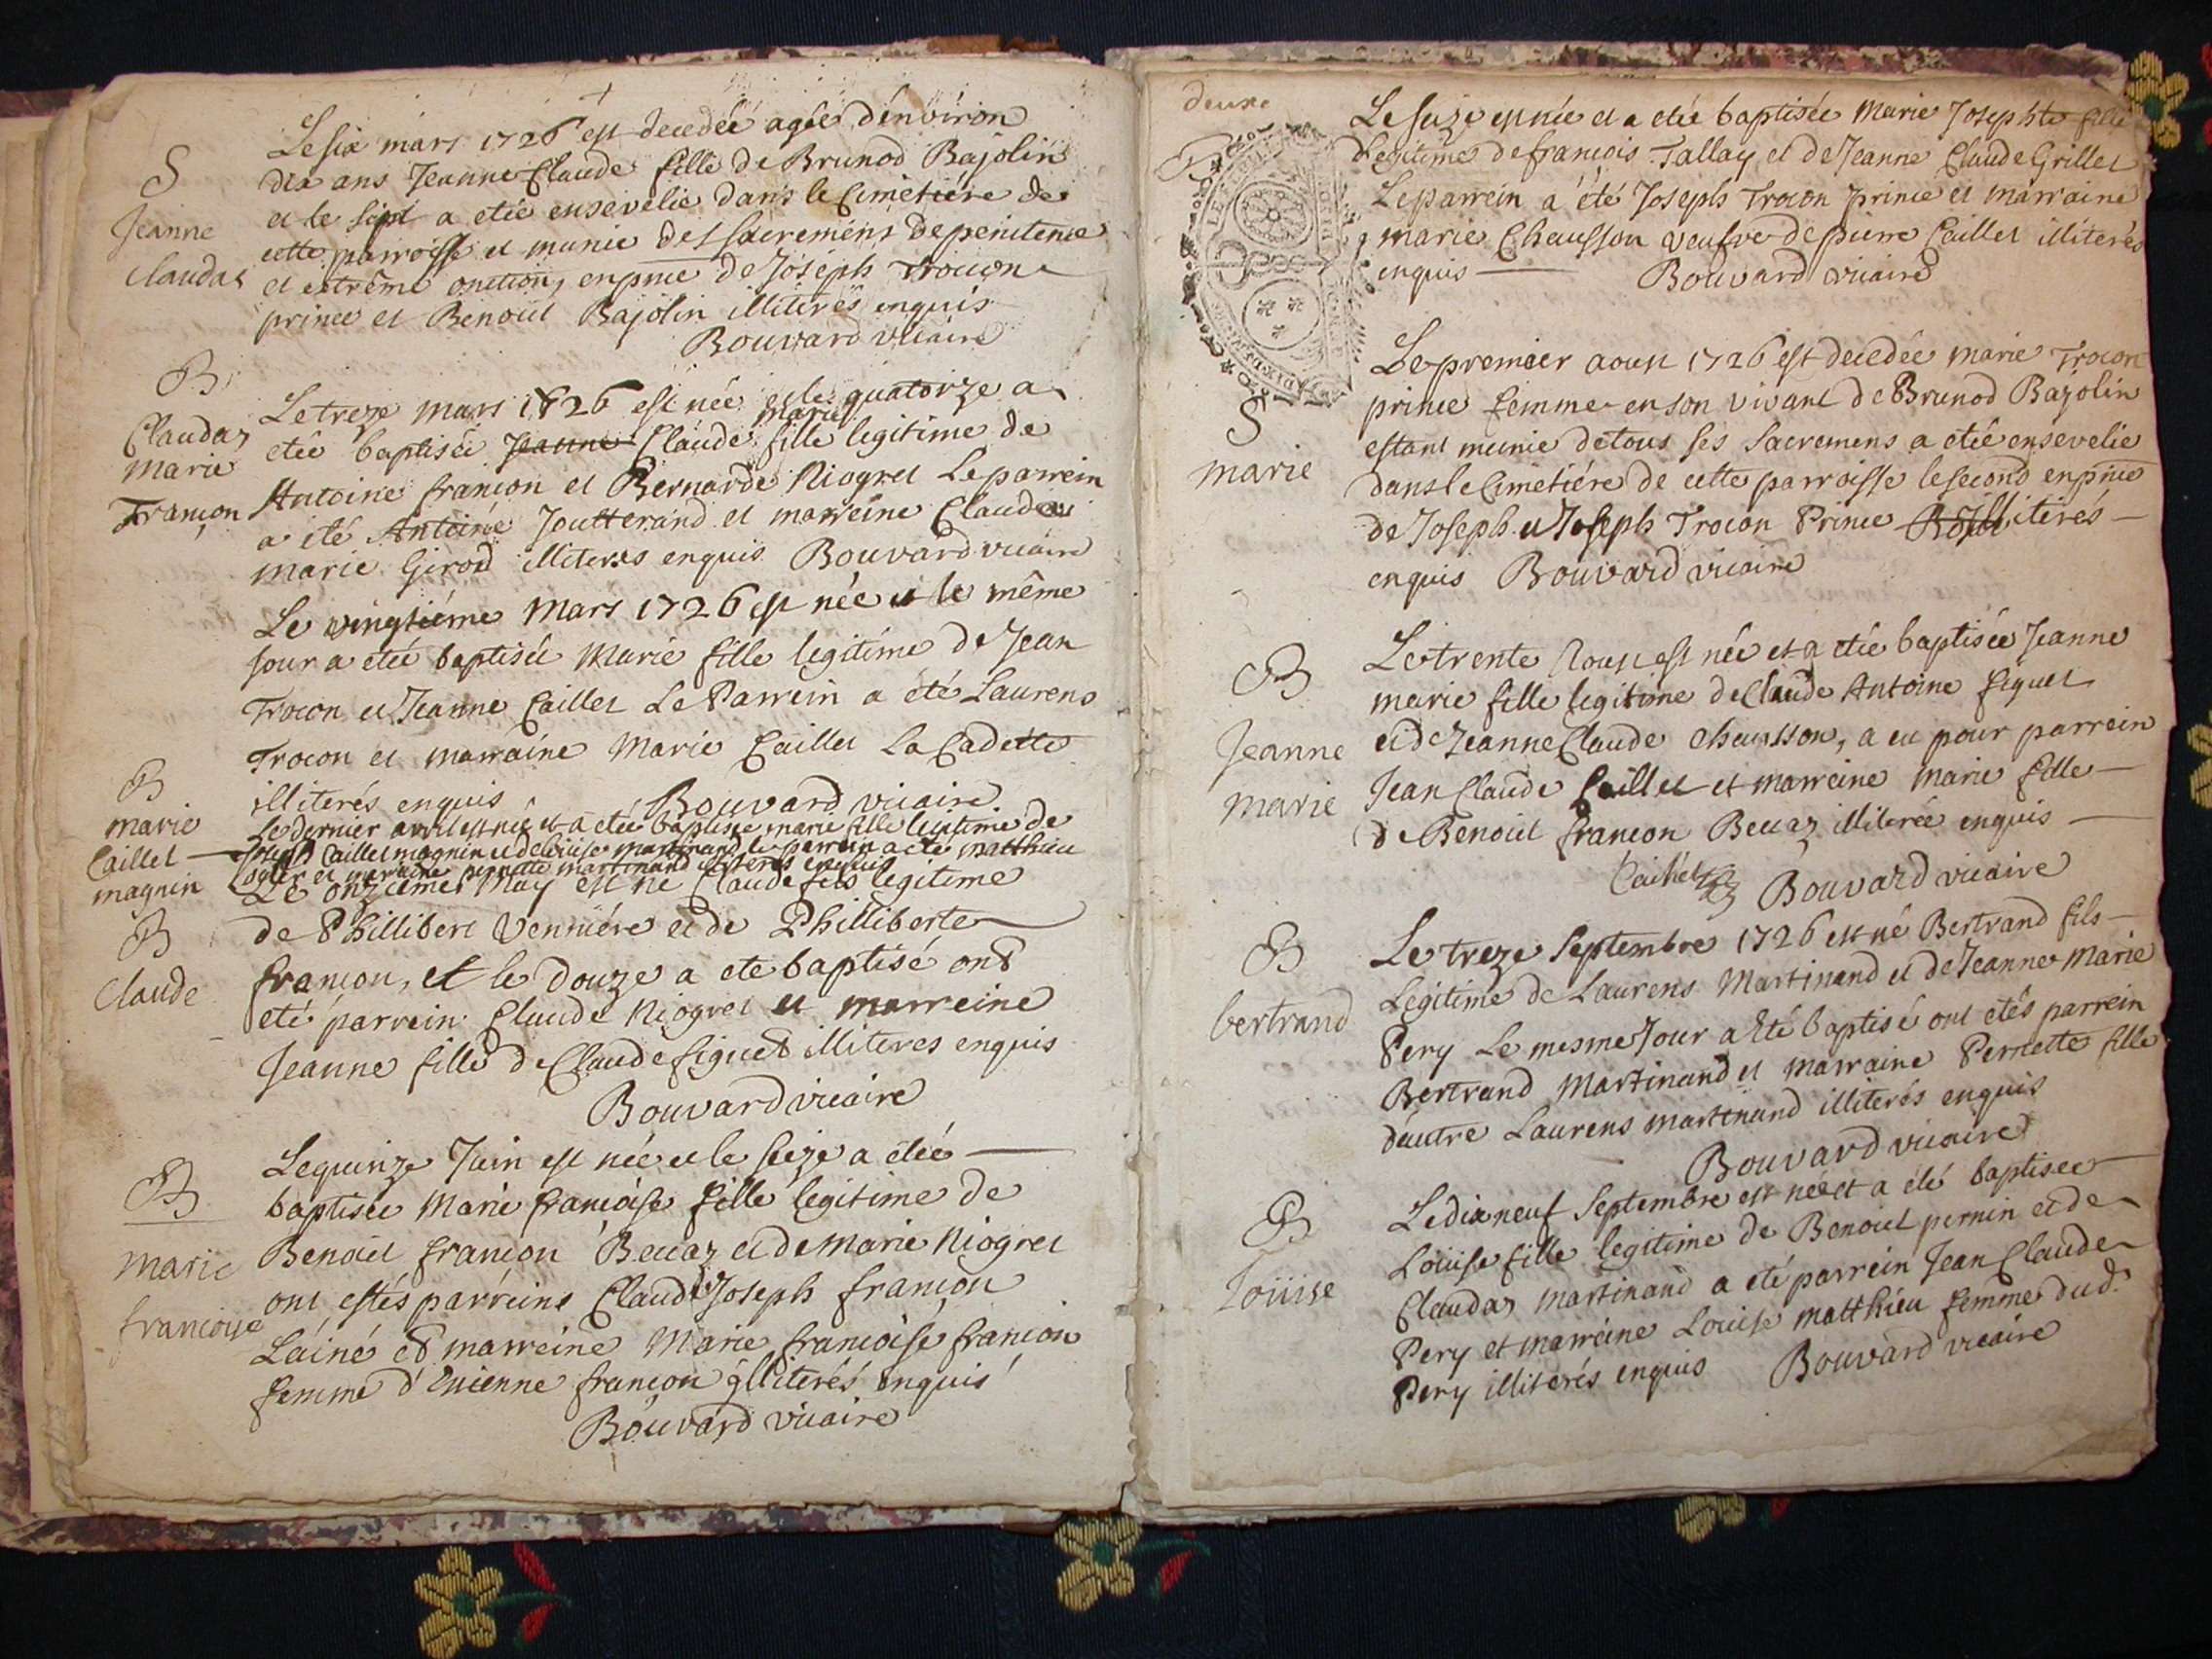 S
Jeanne
Claudaz
Le six mars 1726 est decedée agée d'environ
dix ans Jeanne Claude fille de Brunod Bajolin
et le sept a etée ensevelie dans le Cimetiére de
cette parroisse et munie des sacremens de penitence
et extrême onction, en pnce de Joseph Trocon
prince et Benoict Bajolin illiterés enquis
Bouvard vicaire
B
Claudaz
marie
Francon
Le treze mars 1726 est née et le quatorze a
etée baptisée Jeanne Claude marie fille legitime de
Antoine francon et Bernarde Niogret Le parrein
a été Antoine Joutterand et marreine Claude
marie Girod illiterés enquis Bouvard vicaire
Le vingtiéme Mars 1726 est née et le même
jour a etée baptisée Marie fille legitime de Jean
Trocon et Jeanne Caillet Le Parrein a été Laurens
Trocon et marraine Marie Caillet La Cadette
illiterés enquis Bouvard vicaire
B
marie
Caillet
magnin
Le dernier avril est née et a etée baptisée marie fille legitime de
Joseph Caillet magnin et de Louise martinand le parrein a été matthieu
et marraine pernette martinand illiterés enquis
B
Claude
Le onziéme May est né Claude fils legitime
de Phillibert Venniére et de Philliberte
francon, et le douze a ete baptisé ont
eté parrein Claude Niogret et marreine
Jeanne fille de Claude figuet illiteres enquis
Bouvard vicaire
B
Marie
francoise
Le quinze Juin est née et le seize a etée
baptisée Marie francoise fille legitime de
Benoict francon Beccaz et de Marie Niogret
ont estés parreins Claude Joseph francon
L'ainé et marreine Marie francoise francon
femme d'Etienne francon illiterés enquis
Bouvard vicaire
deuxe
B
Le seize est née et a etée baptisée Marie Josephte fille
Legitime de francois Tallay et de Jeanne Claude Grillet
Le parrein a été Joseph Trocon prince et marraine
marie Chausson veufve de pierre Caillet illiterés
enquis Bouvard vicaire
S
marie
Le premier aoust 1726 est decedée marie Trocon
prince femme en son vivant de Brunod Bajolin
estant munie de tous ses Sacremens a etée ensevelie
dans le Cimetiére de cette parroisse le second en pnce
de Joseph et Joseph Trocon Prince illiterés
enquis Bouvard vicaire
B
Jeanne
marie
Le trente Aoust est née et a etée baptisée Jeanne
marie fille legitime de Claude Antoine figuet
et de Jeanne Claude Chausson, a eu pour parrein
Jean Claude Caillet et marreine marie fille
de Benoict francon Beccaz illiterée enquis
Bouvard vicaire
B
bertrand
Le treze Septembre 1726 est né Bertrand fils
Legitime de Laurens Martinand et de Jeanne Marie
Pery Le mesme Jour a été baptisé ont etés parrein
Bertrand Martinand et marraine Pernette fille
d'autre Laurens martinand illiterés enquis
Bouvard vicaire
B
Loüise
Le dixneuf Septembre est née et a été baptisée
Loüise fille legitime de Benoict pernin et de
Claudaz martinand a eté parrein Jean Claude
Pery et marreine Louise matthieu femme dud.
Pery illiterés enquis Bouvard vicaire